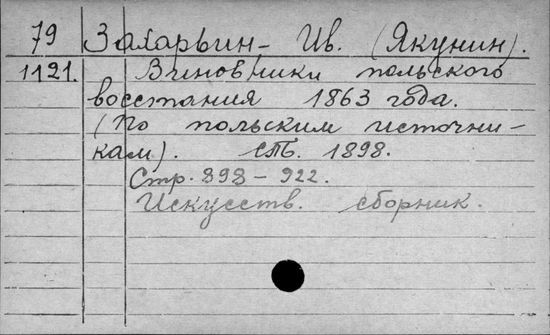 79 Захарьин- Ив. (Якунин).
1121. Виновники польского
восстания 1863 года.
(По польским источни-
кам). СПб. 1898.
Стр. 898-922.
Искусств. сборник.